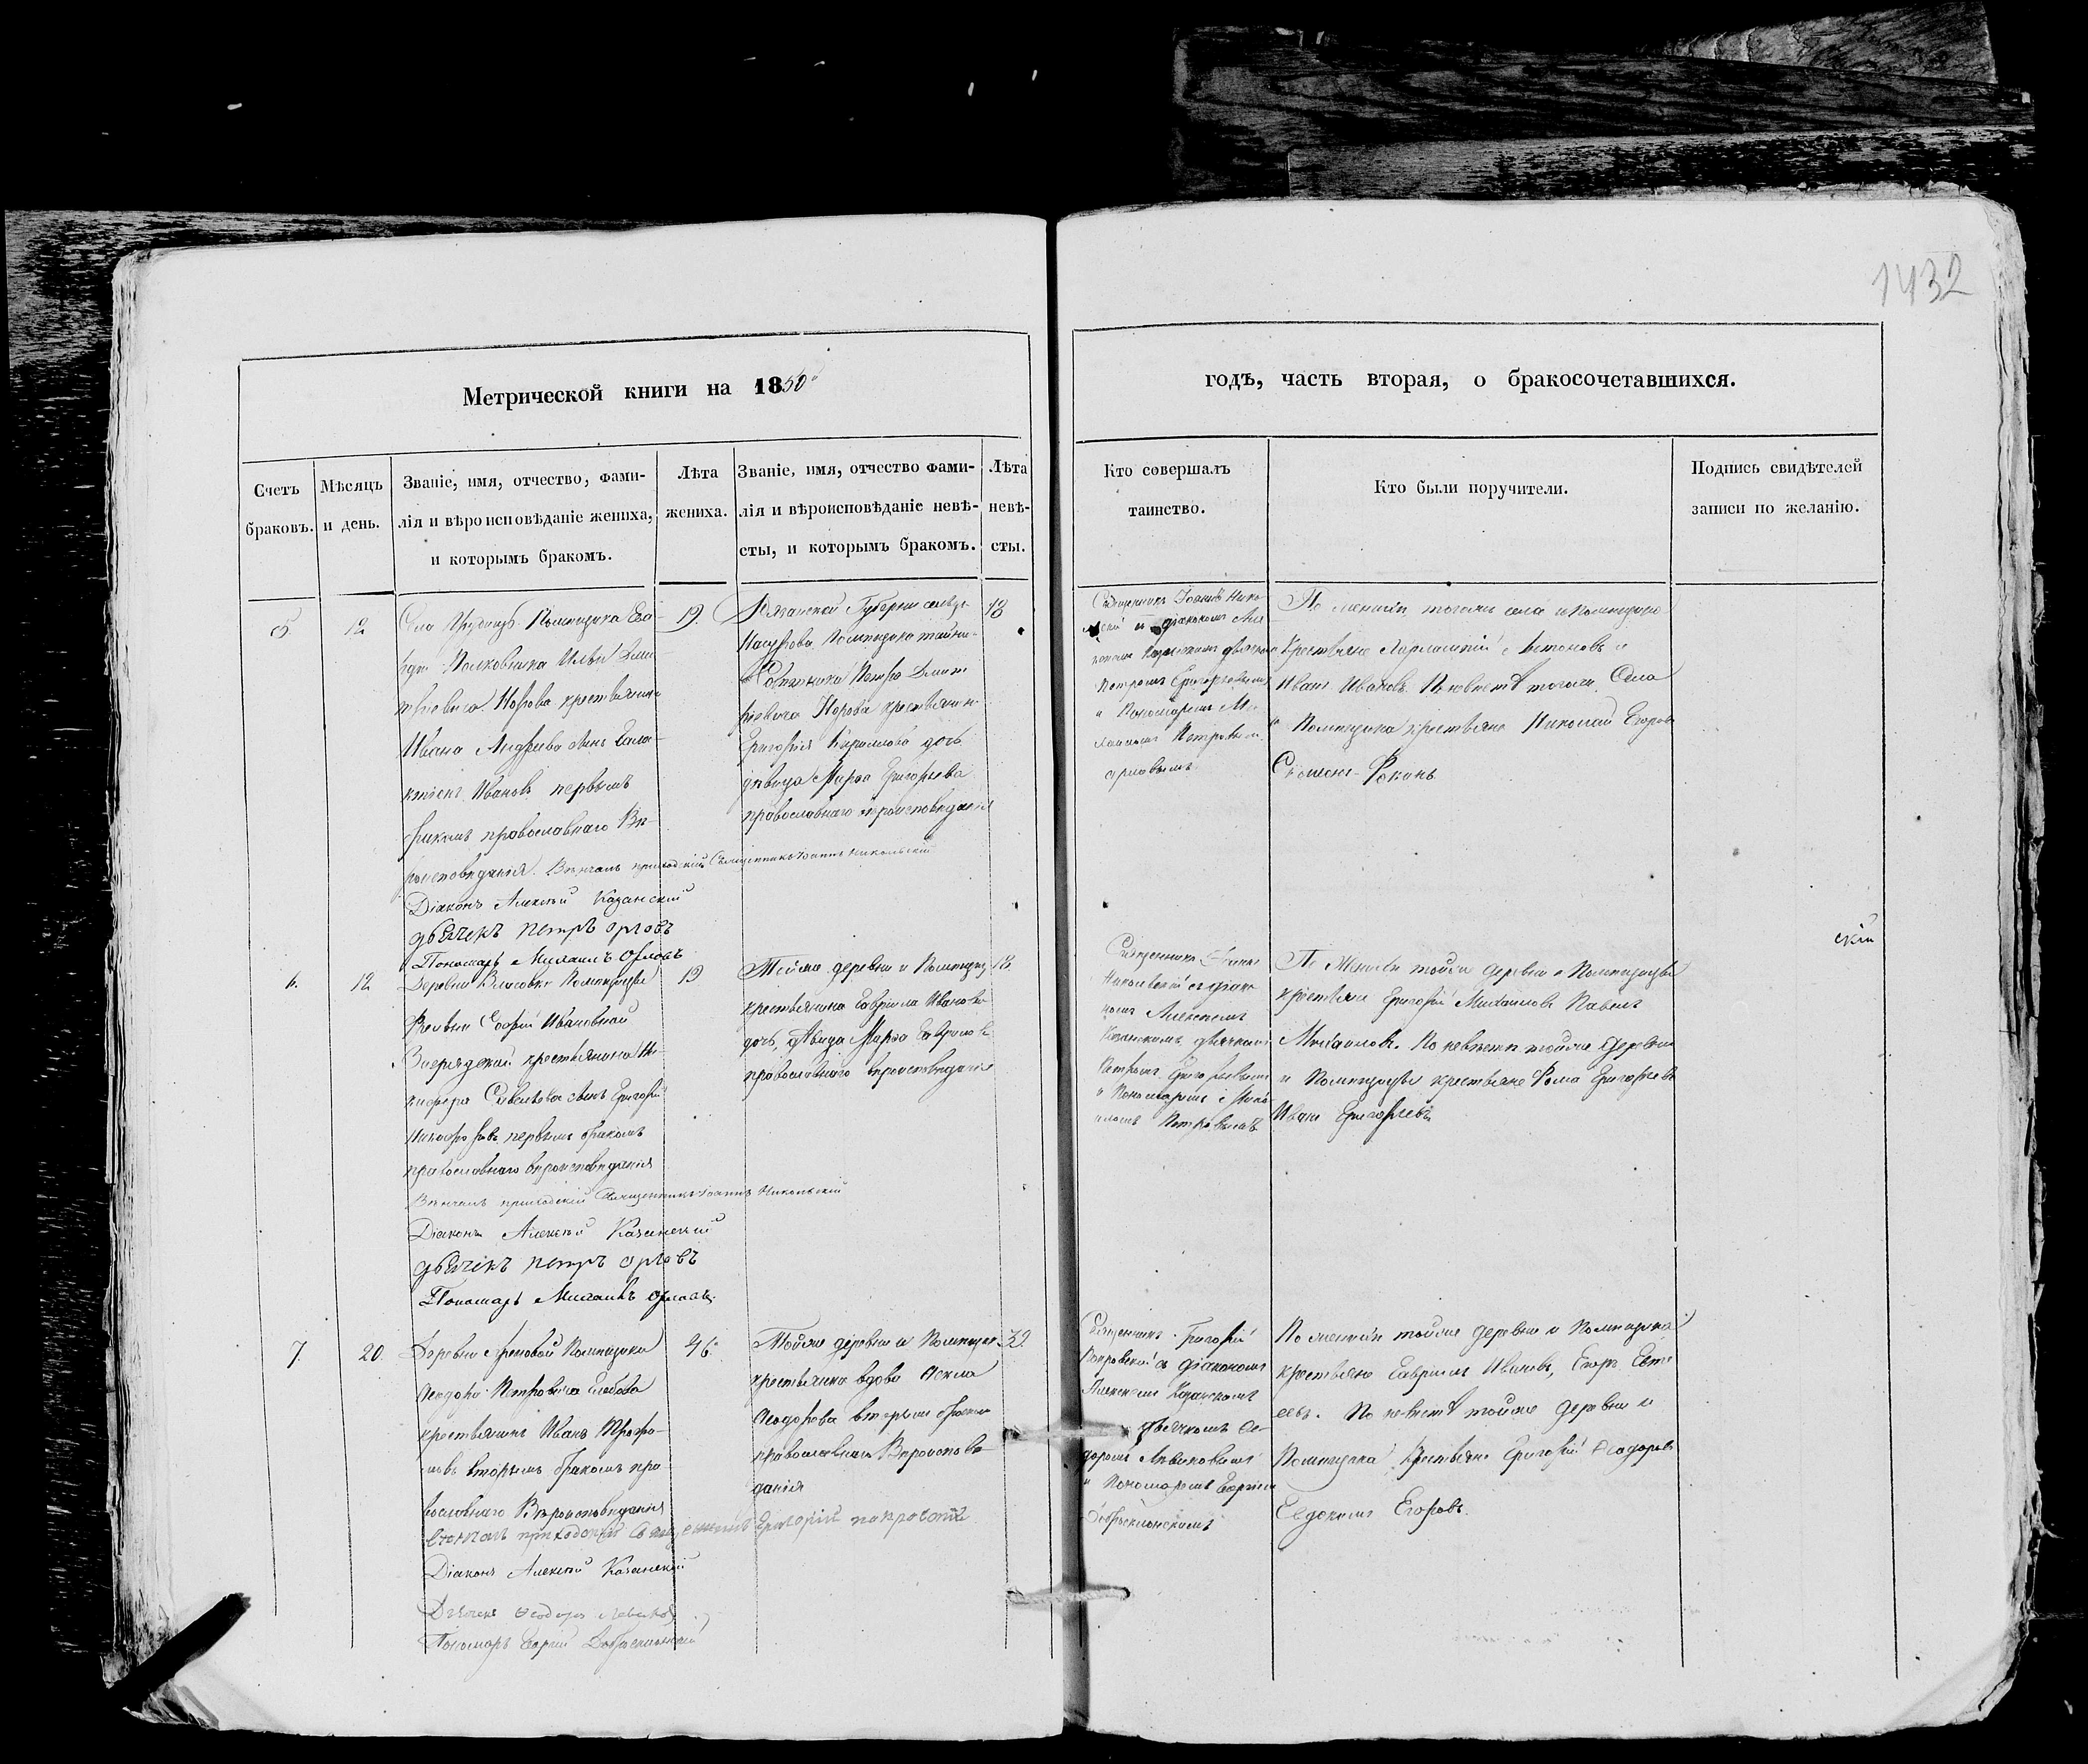 1432
Метрической книги на 1850
годъ, часть вторая, о бракосочетавшихся.
Счетъ браковъ.
Мѣсяцъ и день.
Званіе, имя, отчество, фами-
лія и вѣроисповѣданіе жениха,
и которымъ бракомъ.
Лѣта
жениха.
Званіе, имя, отчество фами-
лія и вѣроисповѣданіе невѣ-
сты, и которымъ бракомъ.
Лѣта
невѣ-
сты.
Кто совершалъ
таинство.
Кто были поручители.
Подпись свидѣтелей
записи по желанію.
5
12
Села Помѣщика
Полковника Ильи Дми
тріевича Норова крестьянина
Ивана Андреева сынъ
Ивановъ первымъ
бракомъ православнаго Вѣ-
роисповѣданія. Вѣнчалъ приходскій Священникъ Іоаннъ Никольскій
Діаконъ Алексѣй Казанскій
дьячекъ петръ орловъ
Пономарь Михаилъ Орловъ
19
Рязанской Губерніи
Помѣщика тайна-
Совѣтника Петра Дмит
ріевича Норова крестьянин
Григорія Кириллова дочь
дѣвица Марѳа Григорьева
православнаго вѣроисповѣданія
18
Священникъ Іоаннъ Нико
діакономъ Але
Казанскимъ
Петромъ Григорьевымъ
и Пономаремъ Ми
хаиломъ Петровымъ
орловымъ
По женихѣ тогоже села и Помѣщика
Крестьяне Антоновъ и
Иванъ Ивановъ. По невѣстѣ тогоже Села
и Помѣщика крестьяне Николай Егоровъ
Ѳокинъ
6.
12
Деревни Власовки Помѣщицы
Софьи Ивановной
крестьянина Ни-
кифора Савельева сынъ Григорій
Никифоровъ первымъ бракомъ
православнаго вѣроисповѣданія
Вѣнчалъ приходскій Священникъ Іоаннъ Никольскій
Діаконъ Алексѣй Казанскій
дьячекъ петръ орловъ
Пономарь Михаилъ Орловъ
19
Тойже деревни и Помѣщиц
крестьянина Гавріила Иванова
дочь дѣвица Марѳа Гаврилова
православнаго вѣроисповѣданія
18.
Священникъ Іоаннъ
Никольскій съ діако
номъ Алексѣемъ
Казанскимъ дьячкомъ
Петромъ Григорьевымъ
и Пономаремъ Миха
иломъ Петровымъ
По Женихѣ тойже деревни и Помѣщицы
крестьяне Григорій Михаиловъ Павелъ
Михаиловъ. По невѣстѣ тойже деревни
и Помѣщицы крестьяне Ѳома Григорьевъ
Иванъ Григорьевъ
скій
7.
20.
Деревни Помѣщика
Ѳеодора Петровича Глебова
крестьянинъ Иванъ Трофи-
мовъ вторымъ бракомъ пра
вославнаго Вѣроисповѣданія
Вѣнчалъ приходскій Священникъ Григорій покровскій
Діаконъ Алексѣй Казанскій
Дьячекъ Ѳеодоръ
Пономарь
46
Тойже деревни и Помѣщика
крестьянка вдова
Ѳеодорова вторымъ бракомъ
православнаго Вѣроисповѣ
данія
32.
Священникъ Григорій
Покровскій съ діакономъ
Алексѣемъ Казанскимъ
дьячкомъ Ѳе
доромъ
и Пономаремъ
По женихѣ тойже деревни и Помѣщика
крестьяне Гавріилъ Ивановъ, Егоръ
По невѣстѣ тойже деревни и
Помѣщика Крестьяне Григорій Ѳеодоровъ
Евдокимъ Егоровъ.